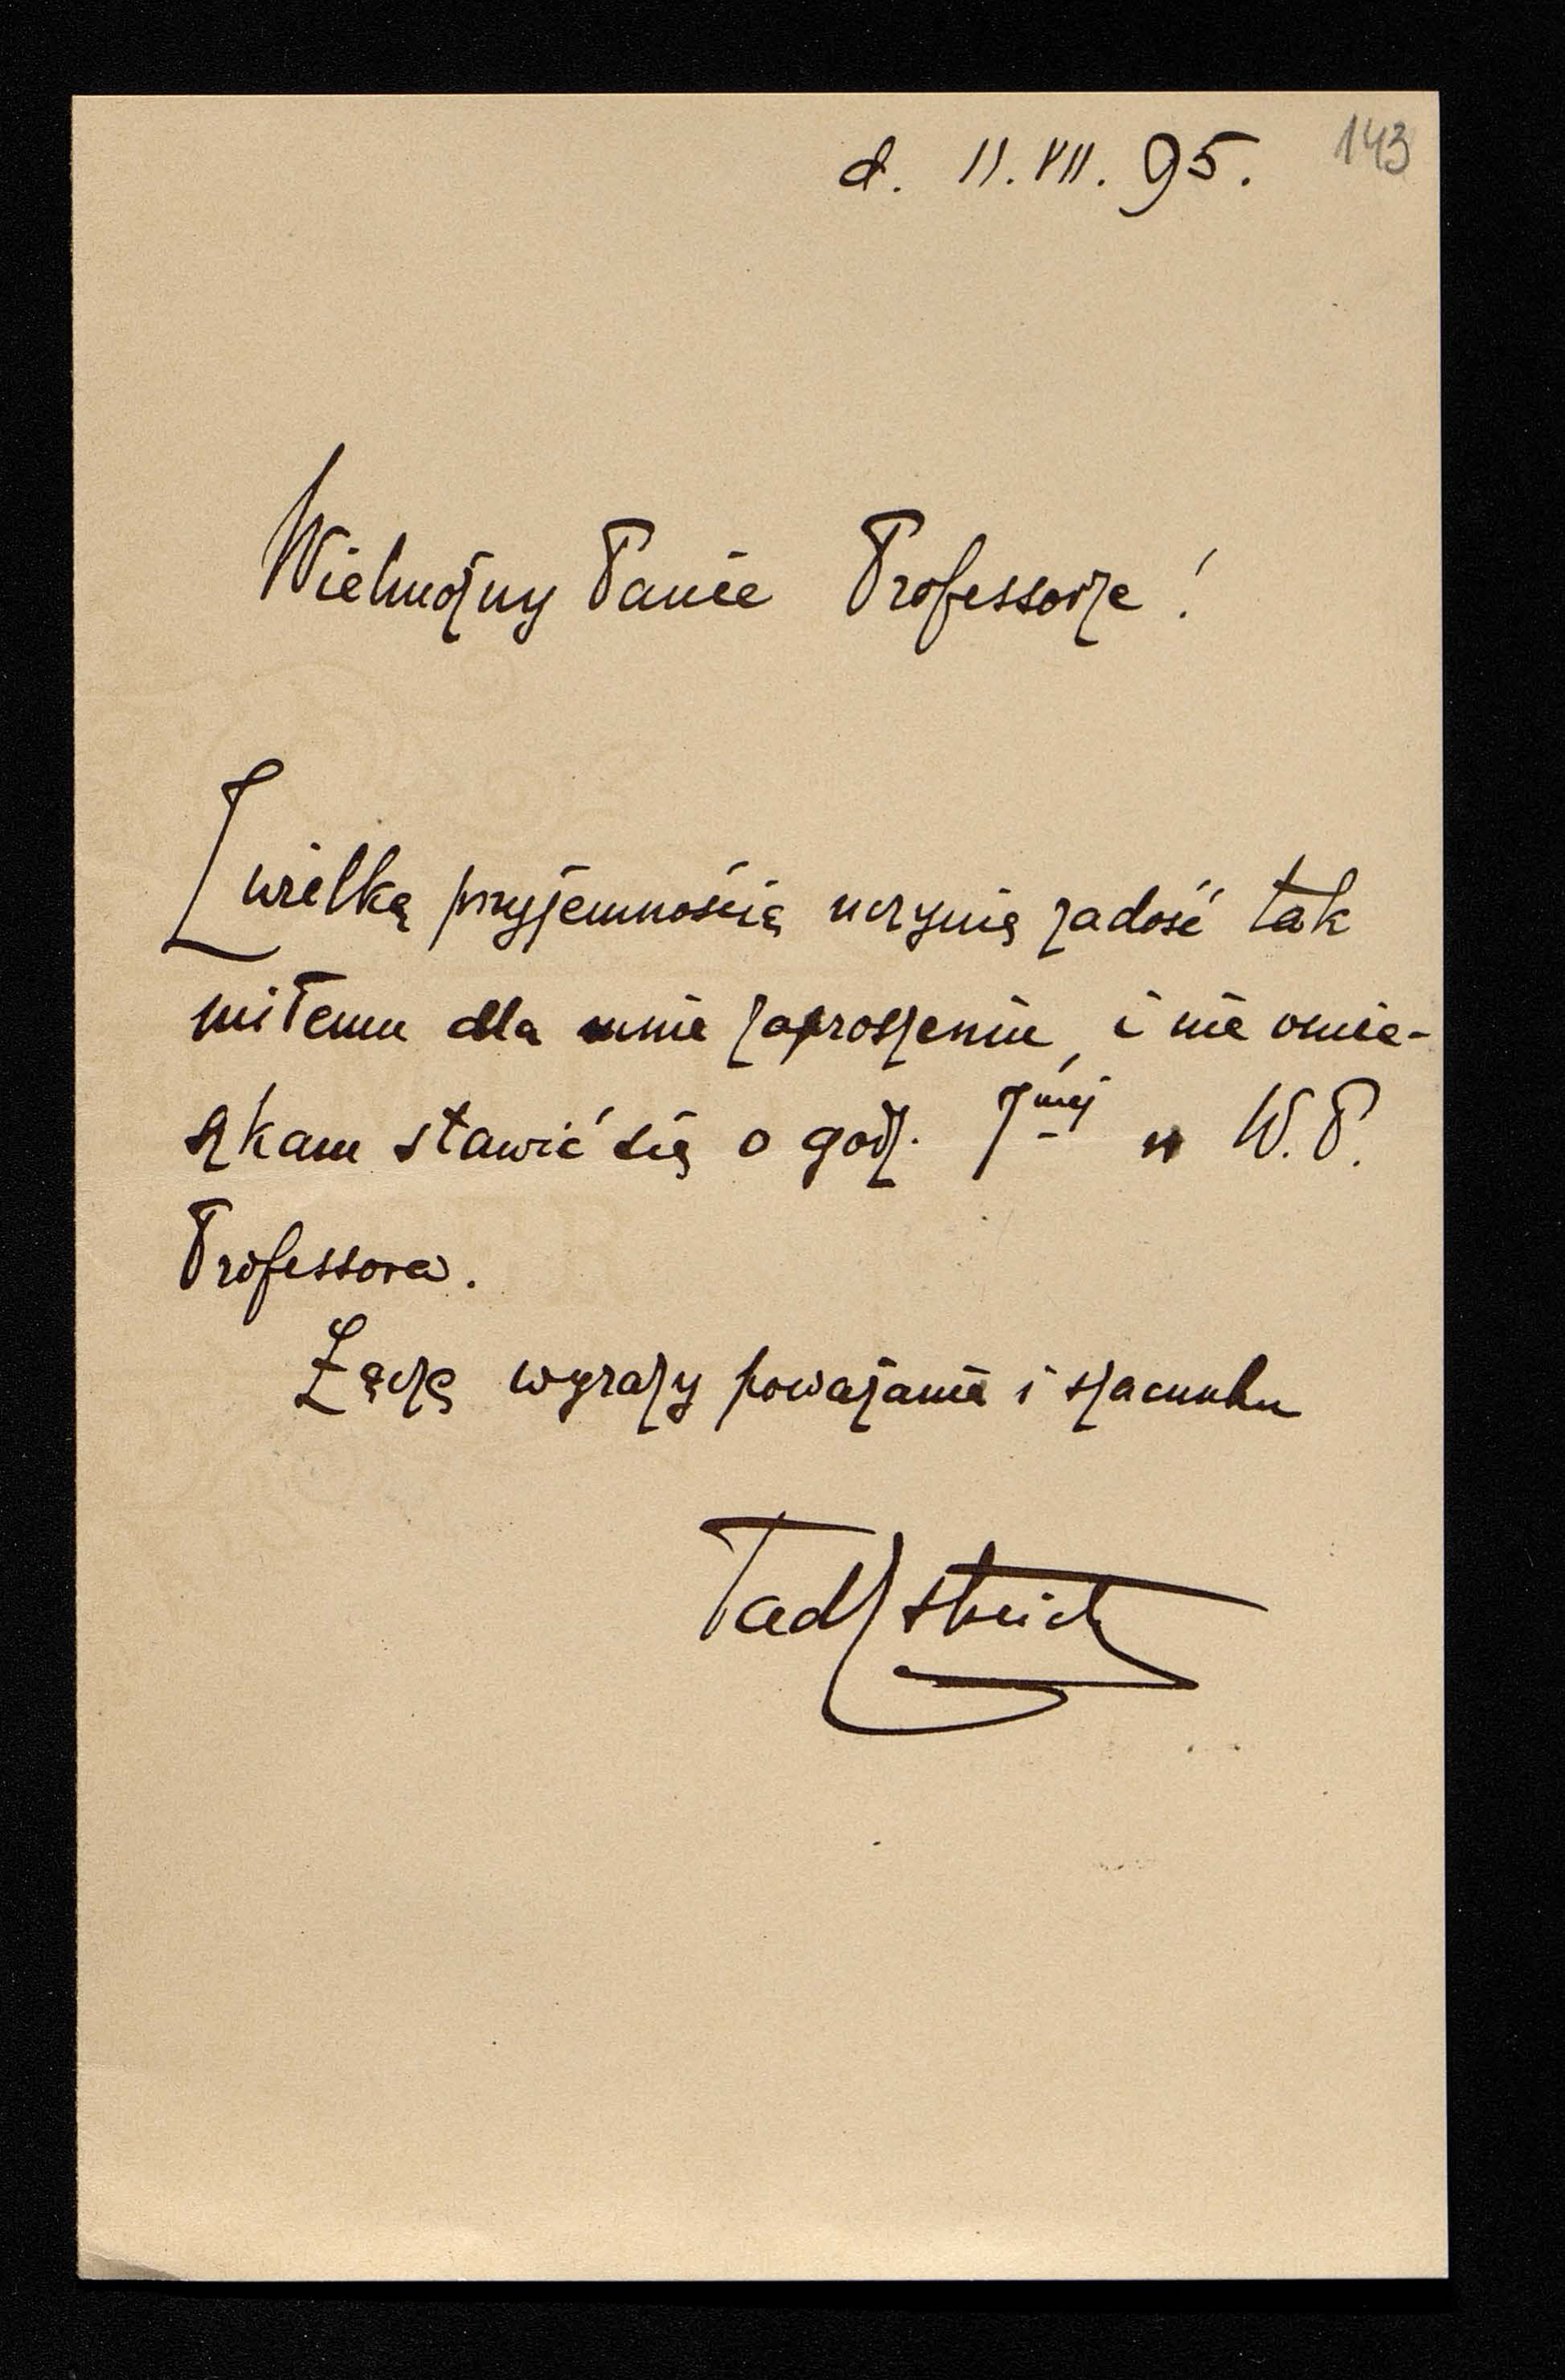 143
d. 11. VII. 95.
Wielmożny Panie Professorze!
Z wielką przyjemnością uczynię zadość tak
miłemu dla mnie zaproszeniu, i nie omie-
szkam stawić się o godz. 7mej u W. P.
Professora.
Łączę wyrazy poważania i szacunku
Tad